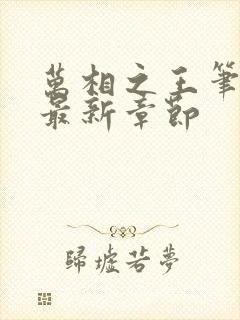 萬相之王筆
最新章節
歸墟若夢